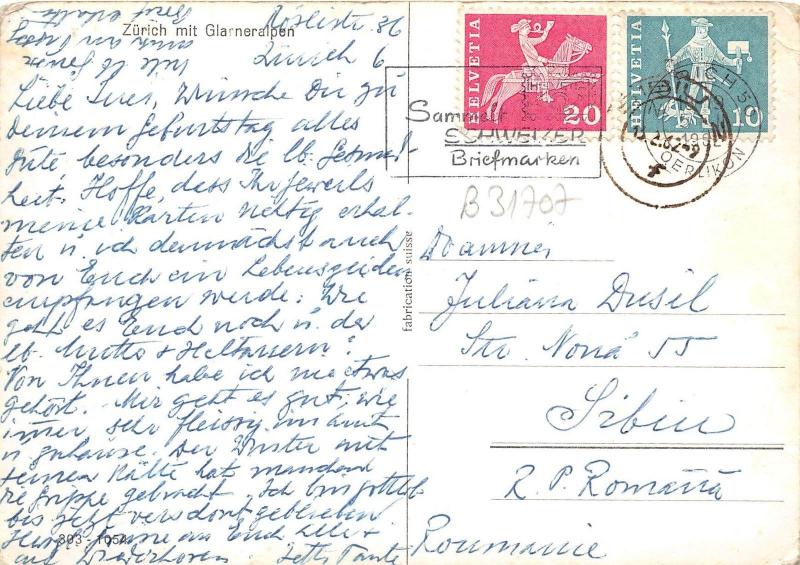 Röslistr. 36
Zürich mit Glarneralpen
Zürich 6
Liebe Ines, Wünsche Dir zu
deinem Geburtstag alles
Gute, besonders die lb. Gesund-
heit. Hoffe, dass Ihr jeweils
meine Karten richtig erhal-
ten u. ich demnächst auch
von Euch ein Lebenszeichen
empfangen werde. Wie
geht es Euch noch u. der
lb. Mutter +
Von Ihnen habe ich nie etwas
gehört. Mir geht es gut, wie
immer sehr fleissig im Amt
u. zuhause, der Winter mit
seinen Kälte hat manchen
die Grippe gebracht. Ich bin gottlob
bis jetzt verschont geblieben
Euch alle +
auf Wiederhören Tante
393 - 1054
fabrication suisse
HELVETIA
20
HELVETIA
10
Sammelt
SCHWEIZER
Briefmarken
ZÜRICH 50
OERLIKON
B 31707
Doamnei
Juliana Dusil
Str. Nouă 55
Sibiu
R. P. Romănă
Roumanie